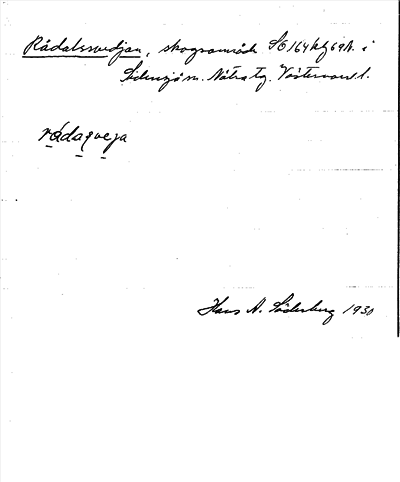 Rådalssvedjan, skogsområde SO 164 kfg 69A. i
Sidensjö sn. Nätra tg. Västernorrl.
rådasveja
Hans A. Söderberg 1930